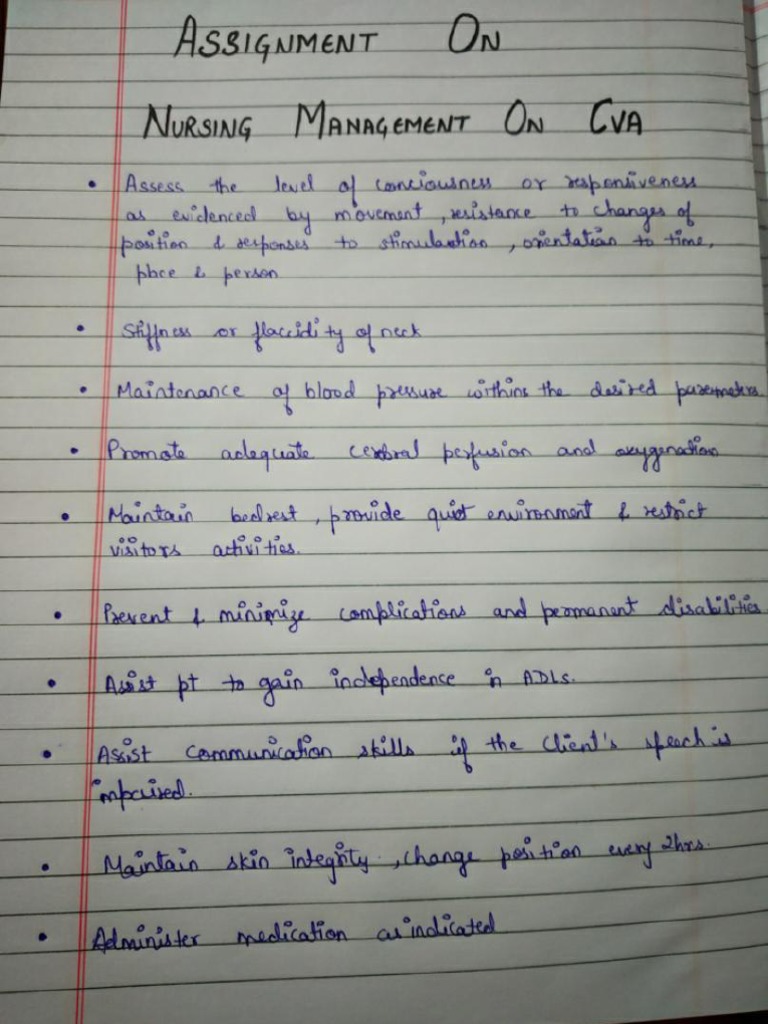 ASSIGNMENT ON
NURSING MANAGEMENT ON CVA
• Assess the level of conciousness or responsiveness
as evidenced by movement, resistance to changes of
position & responses to stimulation, orientation to time,
place & person
• Stiffness or flaccidity of neck
• Maintenance of blood pressure withins the desired paremeters
• Promote adequate cerbral perfusion and oxygenation
• Maintain bedrest, provide quiet environment & restrict
visitors activities.
• Prevent & minimize complications and permanent disabilities
• Assist pt to gain independence in ADLs.
• Assist communication skills if the client's speech is
impaired.
• Maintain skin integrity, change position every 2hrs.
• Administer medication as indicated